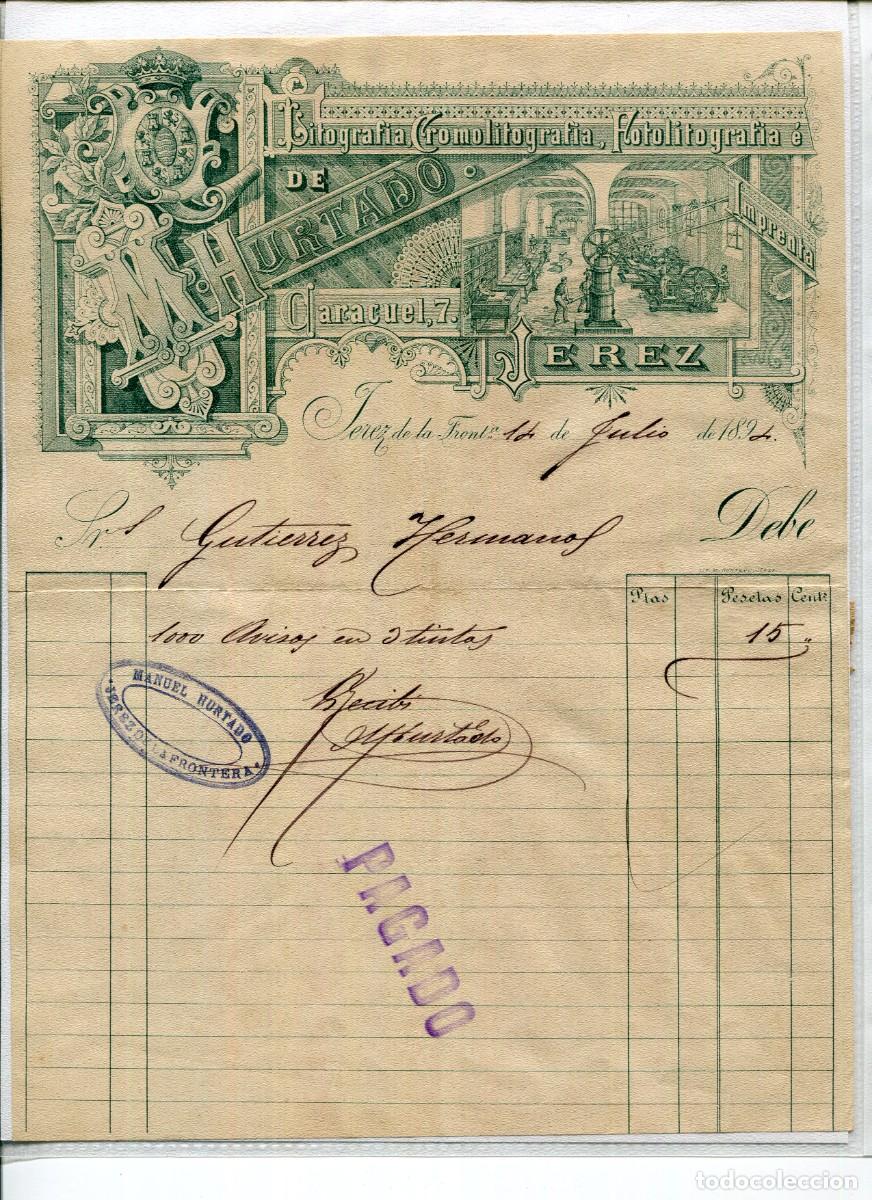 Litografia, Cromolitografia, Fotolitografia é
Imprenta
DE
M. HURTADO.
Caracuel, 7.
JEREZ
Jerez de la Front.ª 14 de Julio de 1894.
Srs Gutierrez Hermanos Debe
Ptas Pesetas Cents
1000 Avisos en 3 tintas 15 "
Recibí
MHurtado
MANUEL HURTADO
JEREZ DE LA FRONTERA
PAGADO
todocoleccion